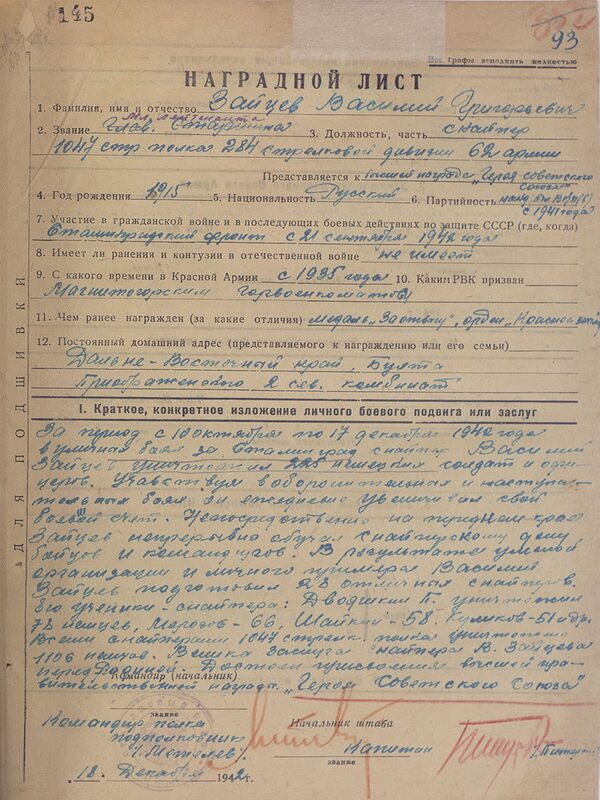 145
93
Все графы заполнять полностью
НАГРАДНОЙ ЛИСТ
1. Фамилия, имя и отчество Зайцев Василий Григорьевич
мл. лейтенанта
2. Звание Глав. Старшина 3. Должность, часть снайпер
1047 стр полка 284 стрелковой дивизии 62 армии
Представляется к высшей награде „Героя Советского
Союза“
4. Год рождения 1915 5. Национальность Русский 6. Партийность канд. ВКП(б)
с 1941 года
7. Участие в гражданской войне и в последующих боевых действиях по защите СССР (где, когда)
Сталинградский фронт с 21 сентября 1942 года
8. Имеет ли ранения и контузии в отечественной войне не имеет
9. С какого времени в Красной Армии с 1935 года 10. Каким РВК призван
Магнитогорским горвоенкоматом
11. Чем ранее награжден (за какие отличия) медаль „За отвагу“, орден „Красное
12. Постоянный домашний адрес (представляемого к награждению или его семьи)
Дальне-Восточный край, Бухта
Приображенского 2 сев. комбинат
ДЛЯ ПОДШИВКИ
I. Краткое, конкретное изложение личного боевого подвига или заслуг
За период с 10 октября по 17 декабря 1942 года
в уличных боях за Сталинград снайпер Василий
Зайцев уничтожил 225 немецких солдат и офи-
церов. Учавствуя в оборонительных и наступа-
тельных боях он ежедневно увеличивал свой
боевой счет. Непосредственно на переднем крае
Зайцев непрерывно обучал снайперскому делу
бойцов и командиров. В результате умелой
организации и личного примера Василий
Зайцев подготовил 28 отличных снайперов.
Его ученики-снайпера: Двояшкин П. уничтожил
78 немцев, Морозов-66, Шайкин-58, Куликов-51 и др.
Всеми снайперами 1047 стрелк. полка уничтожено
1106 немцев. Велика заслуга снайпера В. Зайцева
перед Родиной. Достоин присвоения высшей пра-
Командир (начальник)
вительственной награды „Героя Советского Союза“
звание
Командир полка
подполковник
Метелев.
Начальник штаба
Капитан
звание
18 Декабря 1942 г.